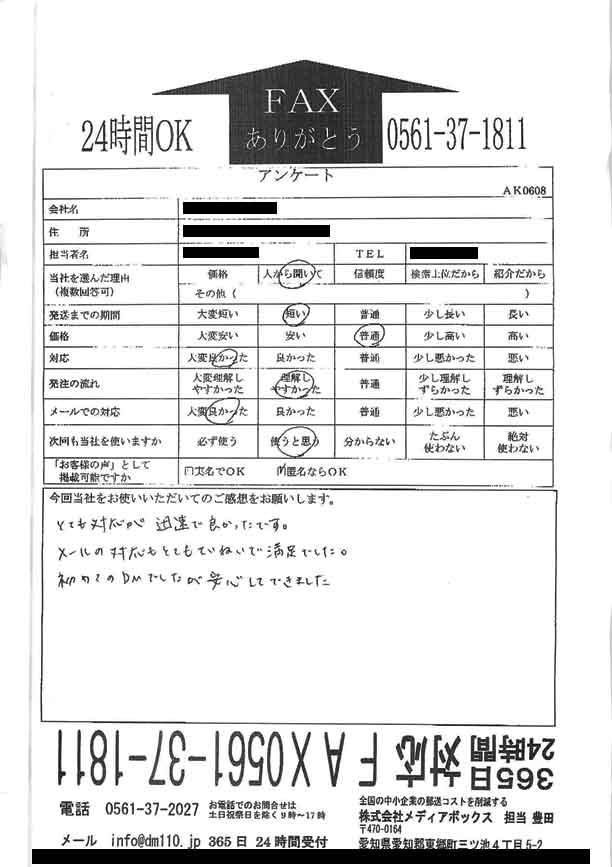 FAX
ありがとう
24時間OK
0561-37-1811
アンケート
AK0608
会社名
住　所
担当者名 TEL
当社を選んだ理由
（複数回答可）
価格 人から聞いて 信頼度 検索上位だから 紹介だから
その他（ ）
発送までの期間 大変短い 短い 普通 少し長い 長い
価格 大変安い 安い 普通 少し高い 高い
対応 大変良かった 良かった 普通 少し悪かった 悪い
発注の流れ 大変理解しやすかった 理解しやすかった 普通 少し理解しずらかった 理解しずらかった
メールでの対応 大変良かった 良かった 普通 少し悪かった 悪い
次回も当社を使いますか 必ず使う 使うと思う 分からない たぶん使わない 絶対使わない
「お客様の声」として
掲載可能ですか
□実名でOK □匿名ならOK
今回当社をお使いいただいてのご感想をお願いします。
とても対応が迅速で良かったです。
メールの対応もとてもていねいで満足でした。
初めてのDMでしたが安心してできました
365日
24時間
対応 FAX0561-37-1811
電話 0561-37-2027
お電話でのお問合せは
土日祝祭日を除く9時～17時
メール info@dm110.jp 365日 24時間受付
全国の中小企業の郵送コストを削減する
株式会社メディアボックス 担当 豊田
〒470-0164
愛知県愛知郡東郷町三ツ池4丁目5-2